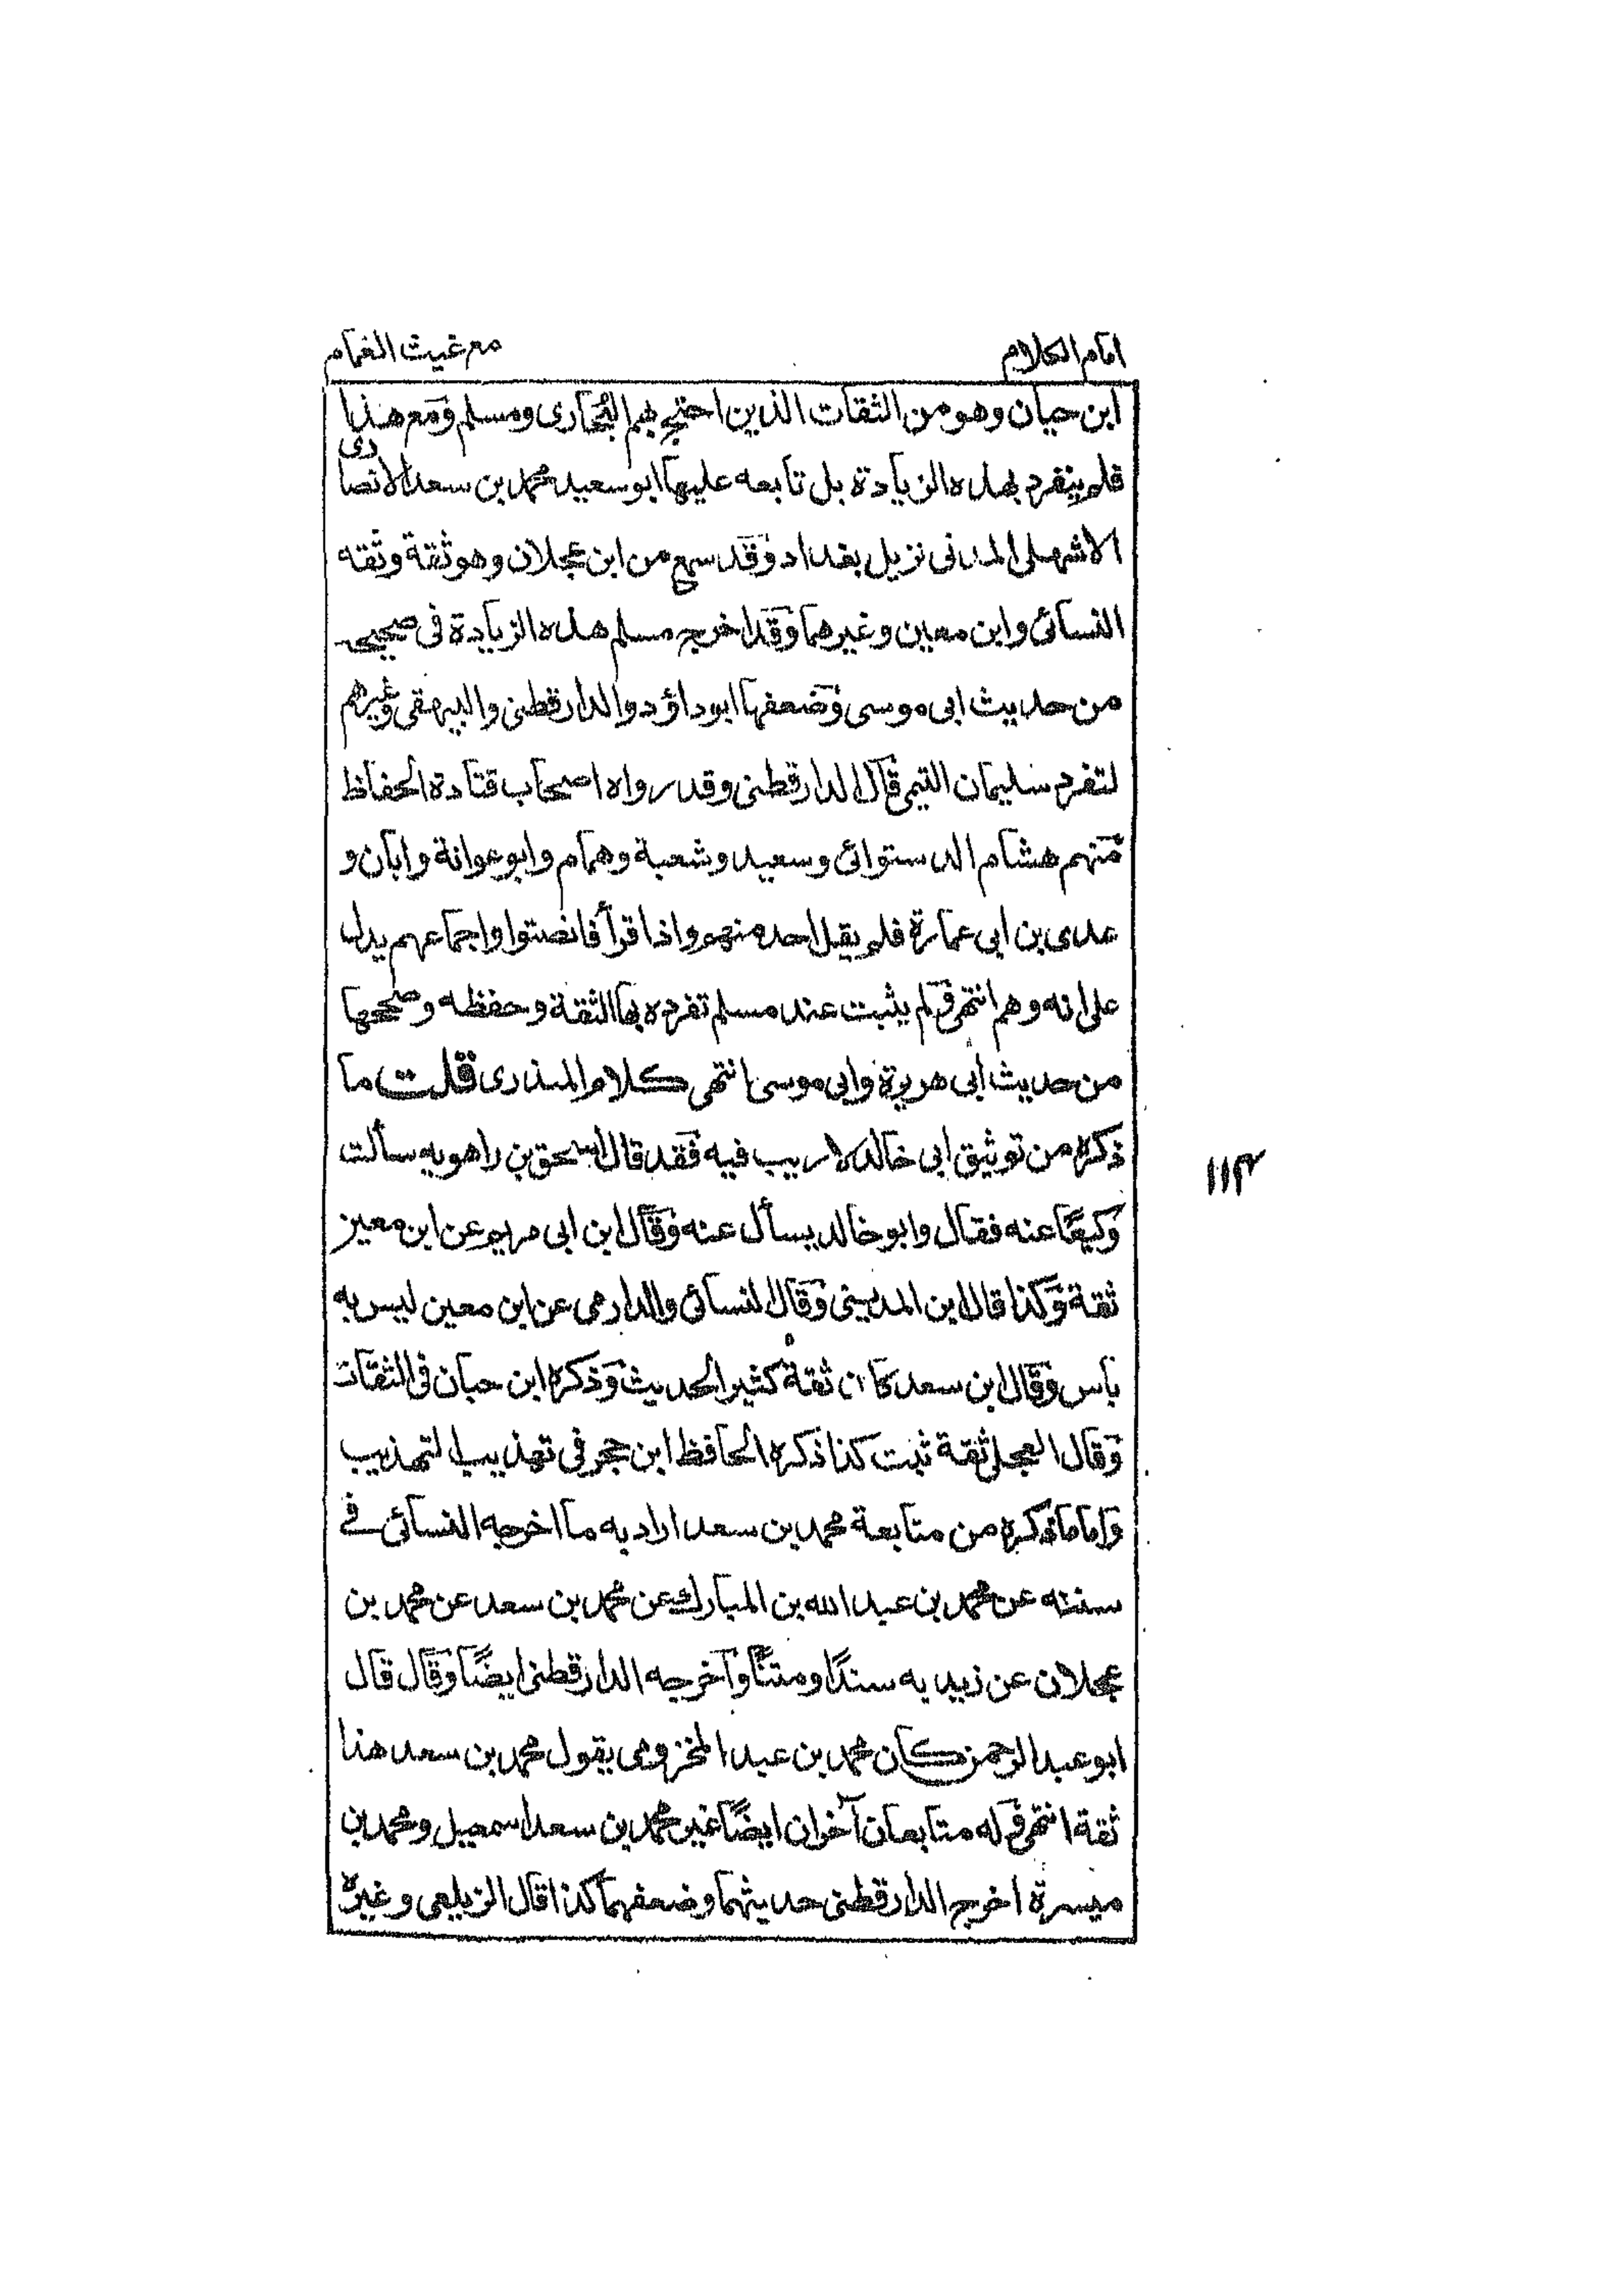 امام الكلام
مع غيث الغمام
ابن حيان وهو من الثقات الذين احتج بهم البخارى ومسلم ومع هذا
فلم ينفرد بهذه الزيادة بل تابعه عليها ابو سعيد محمد بن سعد الانصارى
الاشهلى المدنى نزيل بغداد وقد سمع من ابن عجلان وهو ثقة وثقه
النسائى وابن معين وغيرهما وقد اخرج مسلم هذه الزيادة فى صحيحه
من حديث ابى موسى وضعفها ابو داؤد والدارقطنى والبيهقى وغيرهم
لتفرد سليمان التيمى قال الدارقطنى وقد رواه اصحاب قتادة الحفاظ
منهم هشام الدستوائى وسعيد وشعبة وهمام وابو عوانة وابان و
عدى بن ابى عمارة فلم يقل احد منهم واذا قرأ فانصتوا واجماعهم يدل
على انه وهم انتهى ولم يثبت عند مسلم تفرده بها الثقة وحفظه وصححها
من حديث أبى هريرة وابى موسى انتهى كلام المنذرى قلت ما
ذكره من توثيق ابى خالد لا ريب فيه فقد قال اسحق بن راهويه سألت
وكيعًا عنه فقال وابو خالد يسأل عنه وقال ابن ابى مريم عن ابن معين
ثقة وكذا قال ابن المدينى وقال النسائى والدارمى عن ابن معين ليس به
بأس وقال ابن سعد كان ثقة كثير الحديث وذكره ابن حبان فى الثقات
وقال العجلى ثقة ثبت كذا ذكره الحافظ ابن حجر فى تهذيب التهذيب
واما ما ذكره من متابعة محمد بن سعد اراد به ما اخرجه النسائى فے
سننه عن محمد بن عبد الله بن المبارك عن محمد بن سعد عن محمد بن
عجلان عن زيد به سندًا ومتنًا وأخرجه الدارقطنى ايضًا وقال قال
ابو عبد الرحمن كان محمد بن عبد المخزومى يقول محمد بن سعد هذا
ثقة انتهى وله متابعان آخران ايضًا غير محمد بن سعد اسمعيل ومحمد بن
ميسرة اخرج الدارقطنى حديثهما وضعفهما كذا قال الزيلعى وغيره
١١٣